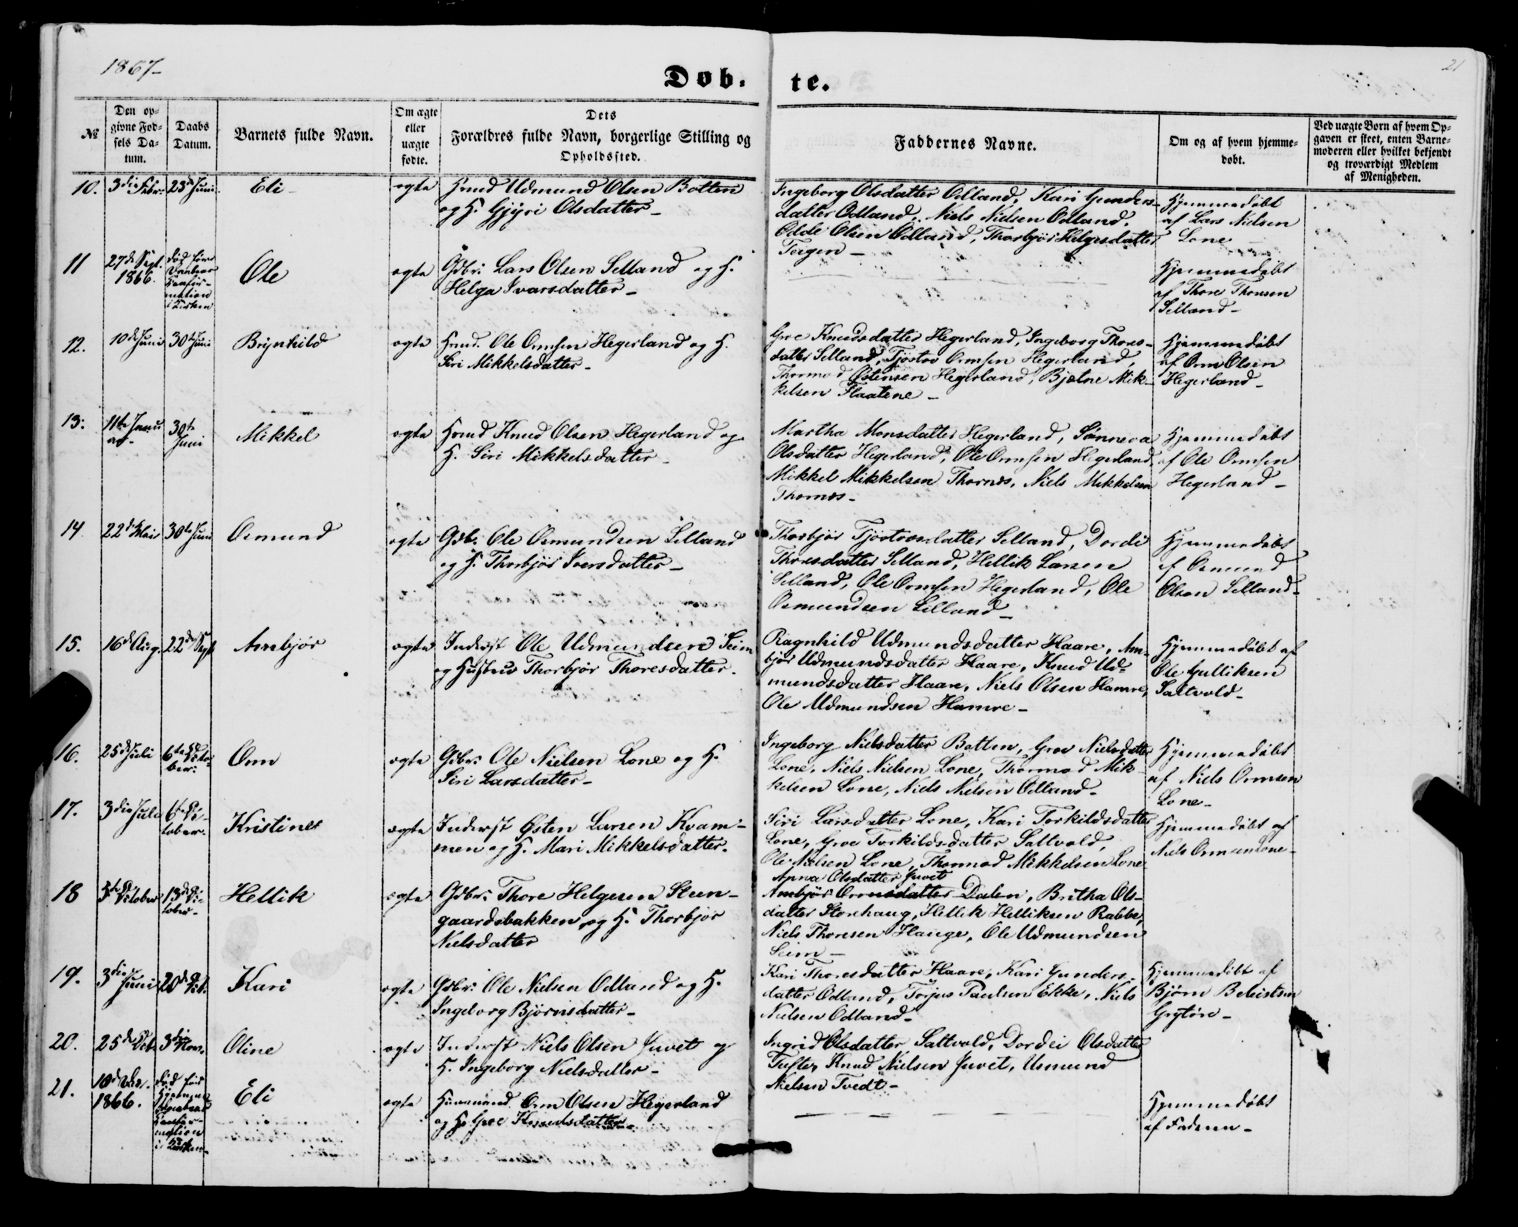 1867-
21
Døb. te.
№
Den op-
givne Fød-
sels Da-
tum.
Daabs
Datum.
Barnets fulde Navn.
Om ægte
eller
uægte
fødte.
Dets
Forældres fulde Navn, borgerlige Stilling og
Opholdssted.
Faddernes Navne.
Om og af hvem hjemme-
døbt.
Ved uægte Børn af hvem Op-
gaven er skeet, enten Barne-
moderen eller hvilket bekjendt
og troværdigt Medlem
af Menigheden.
10. 3die Febr. 23de Juni Eli ægte Huusmd Udmund Olsen Botten
og H. Gjyri Olsdatter-
Ingeborg Olsdatter Odland, Kari Gunders-
datter Odland, Niels Nielsen Odland,
Odde Olsen Odland, Thorbjør Helgesdatter
Teigen-
Hjemmedøbt
af Lars Nielsen
Lone
11 27de Sept.
1866. Ole ægte Gdbr. Lars Olsen Selland og H.
Helga Ivarsdatter-
Hjemmedøbt
af Thore Thorsen
Selland-
12. 10de Juni 30te Juni Brynhild ægte Huusmd. Ole Ormsen Hegerland og H.
Siri Mikkelsdatter-
Groe Knudsdatter Hegerland, Ingeborg Thores-
datter Selland, Tjøstov Ormsen Hegerland,
Østensen Hegerland, Bjelne Mik-
kelsen Flaatene-
Hjemmedøbt
af Orm Olsen
Hegerland-
13. 11te 30te
Juni Mikkel ægte Huusmd Knud Olsen Hegerland og
H. Siri Mikkelsdatter
Martha Monsdatter Hegerland, Sønneva
Olsdatter Hegerland, Ole Ormsen Hegerland
Mikkel Mikkelsen Thornes, Niels Mikkelsen
Thornes-
Hjemmedøbt
af Ole Ormsen
Hegerland-
14 22de Mai 30te Juni Osmund ægte Gdbr. Ole Osmundsen Selland
og H. Thorbjør Iversdatter-
Thorbjør Tjøstovsdatter Selland, Dordi
Thoresdatter Selland, Hellik Larsen
Selland, Ole Ormsen Hegerland, Ole
Osmundsen Selland
Hjemmedøbt
af Osmund
Olsen Selland-
15. 16de Aug. 22de Sept Ambjør ægte Inderst Ole Udmundsen Seim
og Hustru Thorbjør Thoresdatter.
Ragnhild Udmundsdatter Haare, Am-
bjør Udmundsdatter Haare, Knud Ud-
mundsdatter Haare, Niels Olsen Hamre,
Ole Udmundsen Hamre-
Hjemmedøbt af
Ole Gulliksen
Saltvold-
16. 25de Juli 6te Octo-
ber. Orm ægte Gdbr. Ole Nielsen Lone og H.
Siri Larsdatter-
Ingeborg Nielsdatter Botten, Groe Nielsdatter
Lone, Niels Nielsen Lone, Thormod Mik-
kelsen Lone, Niels Nielsen Odland-
Hjemmedøbt
af Niels Ormsen
Lone-
17. 3die Juli 6te Oc-
tober. Kristines ægte Inderst Østen Larsen Kvam-
men og H. Mari Mikkelsdatter.
Siri Larsdatter Lone, Kari Torkildsdatter
Lone, Groe Torkildsdatter Saltvold,
Ole Nielsen Lone, Thormod Mikkelsen Lone
Hjemmedøbt af
Niels Ormsen Lone-
18 October 13de Oc-
tober- Hellik ægte Gdbr. Thore Helgesen Steen-
gaardsbakken og H. Thorbjør
Nielsdatter
Anna Olsdatter Juvet
Ambjør Ormsdatter Dalen, Britha Ols-
datter Storhaug, Hellik Helliksen Rabbe,
Niels Thoresen Hauge, Ole Udmundsen
Seim-
19. 3die Juni 20de Oct. Kari ægte Gdbr. Ole Nielsen Odland og H.
Ingeborg Bjørnsdatter-
Kari Thoresdatter Haare, Kari Gunders-
datter Odland, Torjus Paulsen Ekke, Niels
Nielsen Odland-
Hjemmedøbt af
Bjørn
20. 25de Oct. 3die Nov. Oline ægte Inderst Niels Olsen Juvet og
H. Ingeborg Nielsdatter-
Ingrid Olsdatter Saltvold, Dordei Olsdatter
Tufte, Knud Nielsen Juvet, Usmund
Nielsen Tvedt-
21. 18de
1866. Eli ægte Huusmand Orm Olsen Hegerland
og H. Groe Knudsdatter-
Hjemmedøbt
af Faderen-